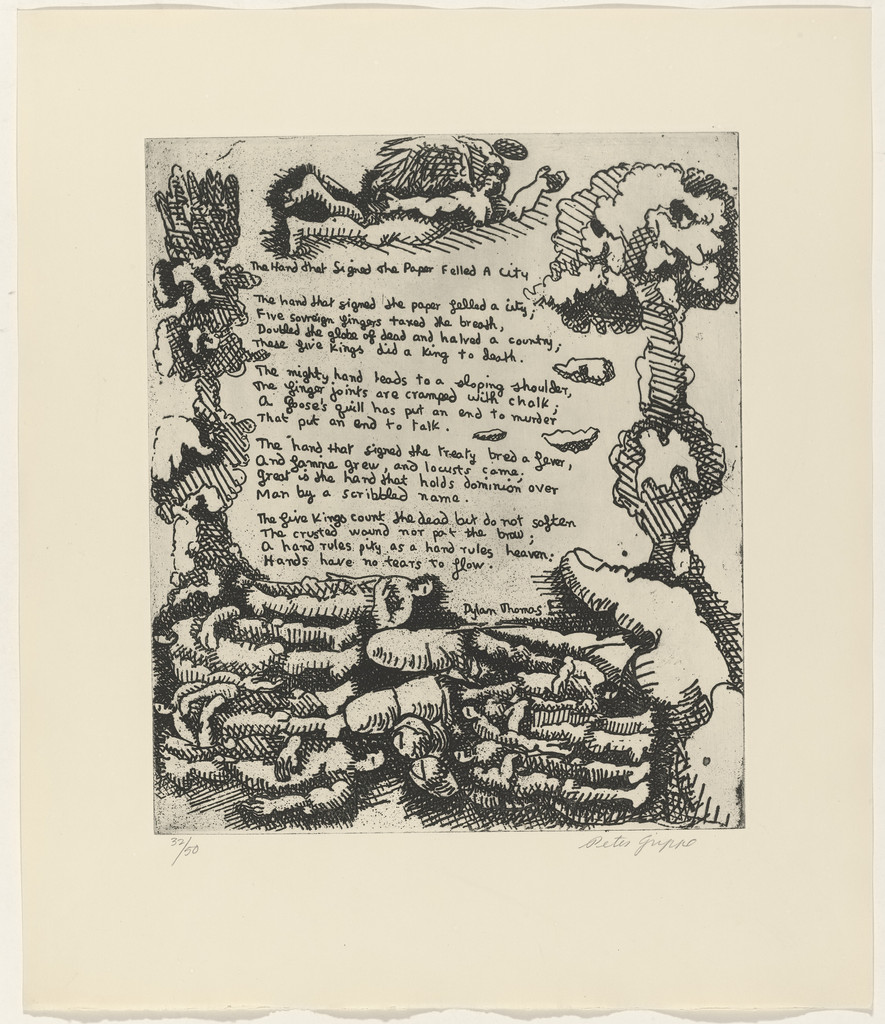 The Hand that Signed the Paper Felled A City
The hand that signed the paper felled a city;
Five sovreign fingers taxed the breath,
Doubled the globe of dead and halved a country;
These five Kings did a King to death.
The mighty hand leads to a sloping shoulder,
The finger joints are cramped with chalk;
A goose's quill has put an end to murder
That put an end to talk.
The hand that signed the treaty bred a fever,
And famine grew, and locusts came;
Great is the hand that holds dominion over
Man by a scribbled name.
The five Kings count the dead but do not soften
The crusted wound nor pat the brow;
A hand rules pity as a hand rules heaven;
Hands have no tears to flow.
Dylan Thomas
32/50
Peter Grippe